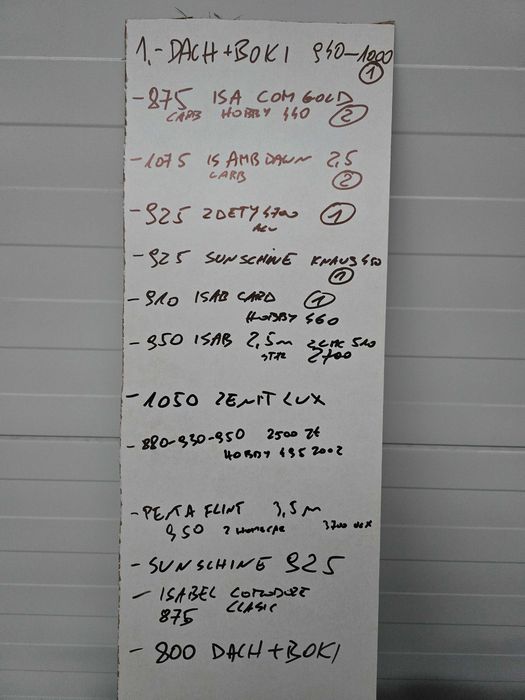 1.- DACH+BOKI 940-1000
1
-875 ISA COM GOLD
CARB HOBBY 440 2
-1075 IS AMB DAWN 2,5
CARB 2
-925 2 DETY 4700 1
ALU
-925 SUNSCHINE KNAUS 450
1
-910 ISAB CARD 1
HOBBY 460
-950 ISAB 2,5m
STR 2700
-1050 ZENIT LUX
-880-930-950 2500 Zł
HOBBY 495 2002
-PENTA FLINT 3,5m
950
-SUNSCHINE 925
-ISABEL COMODORE
875 CLASIC
-800 DACH+BOKI